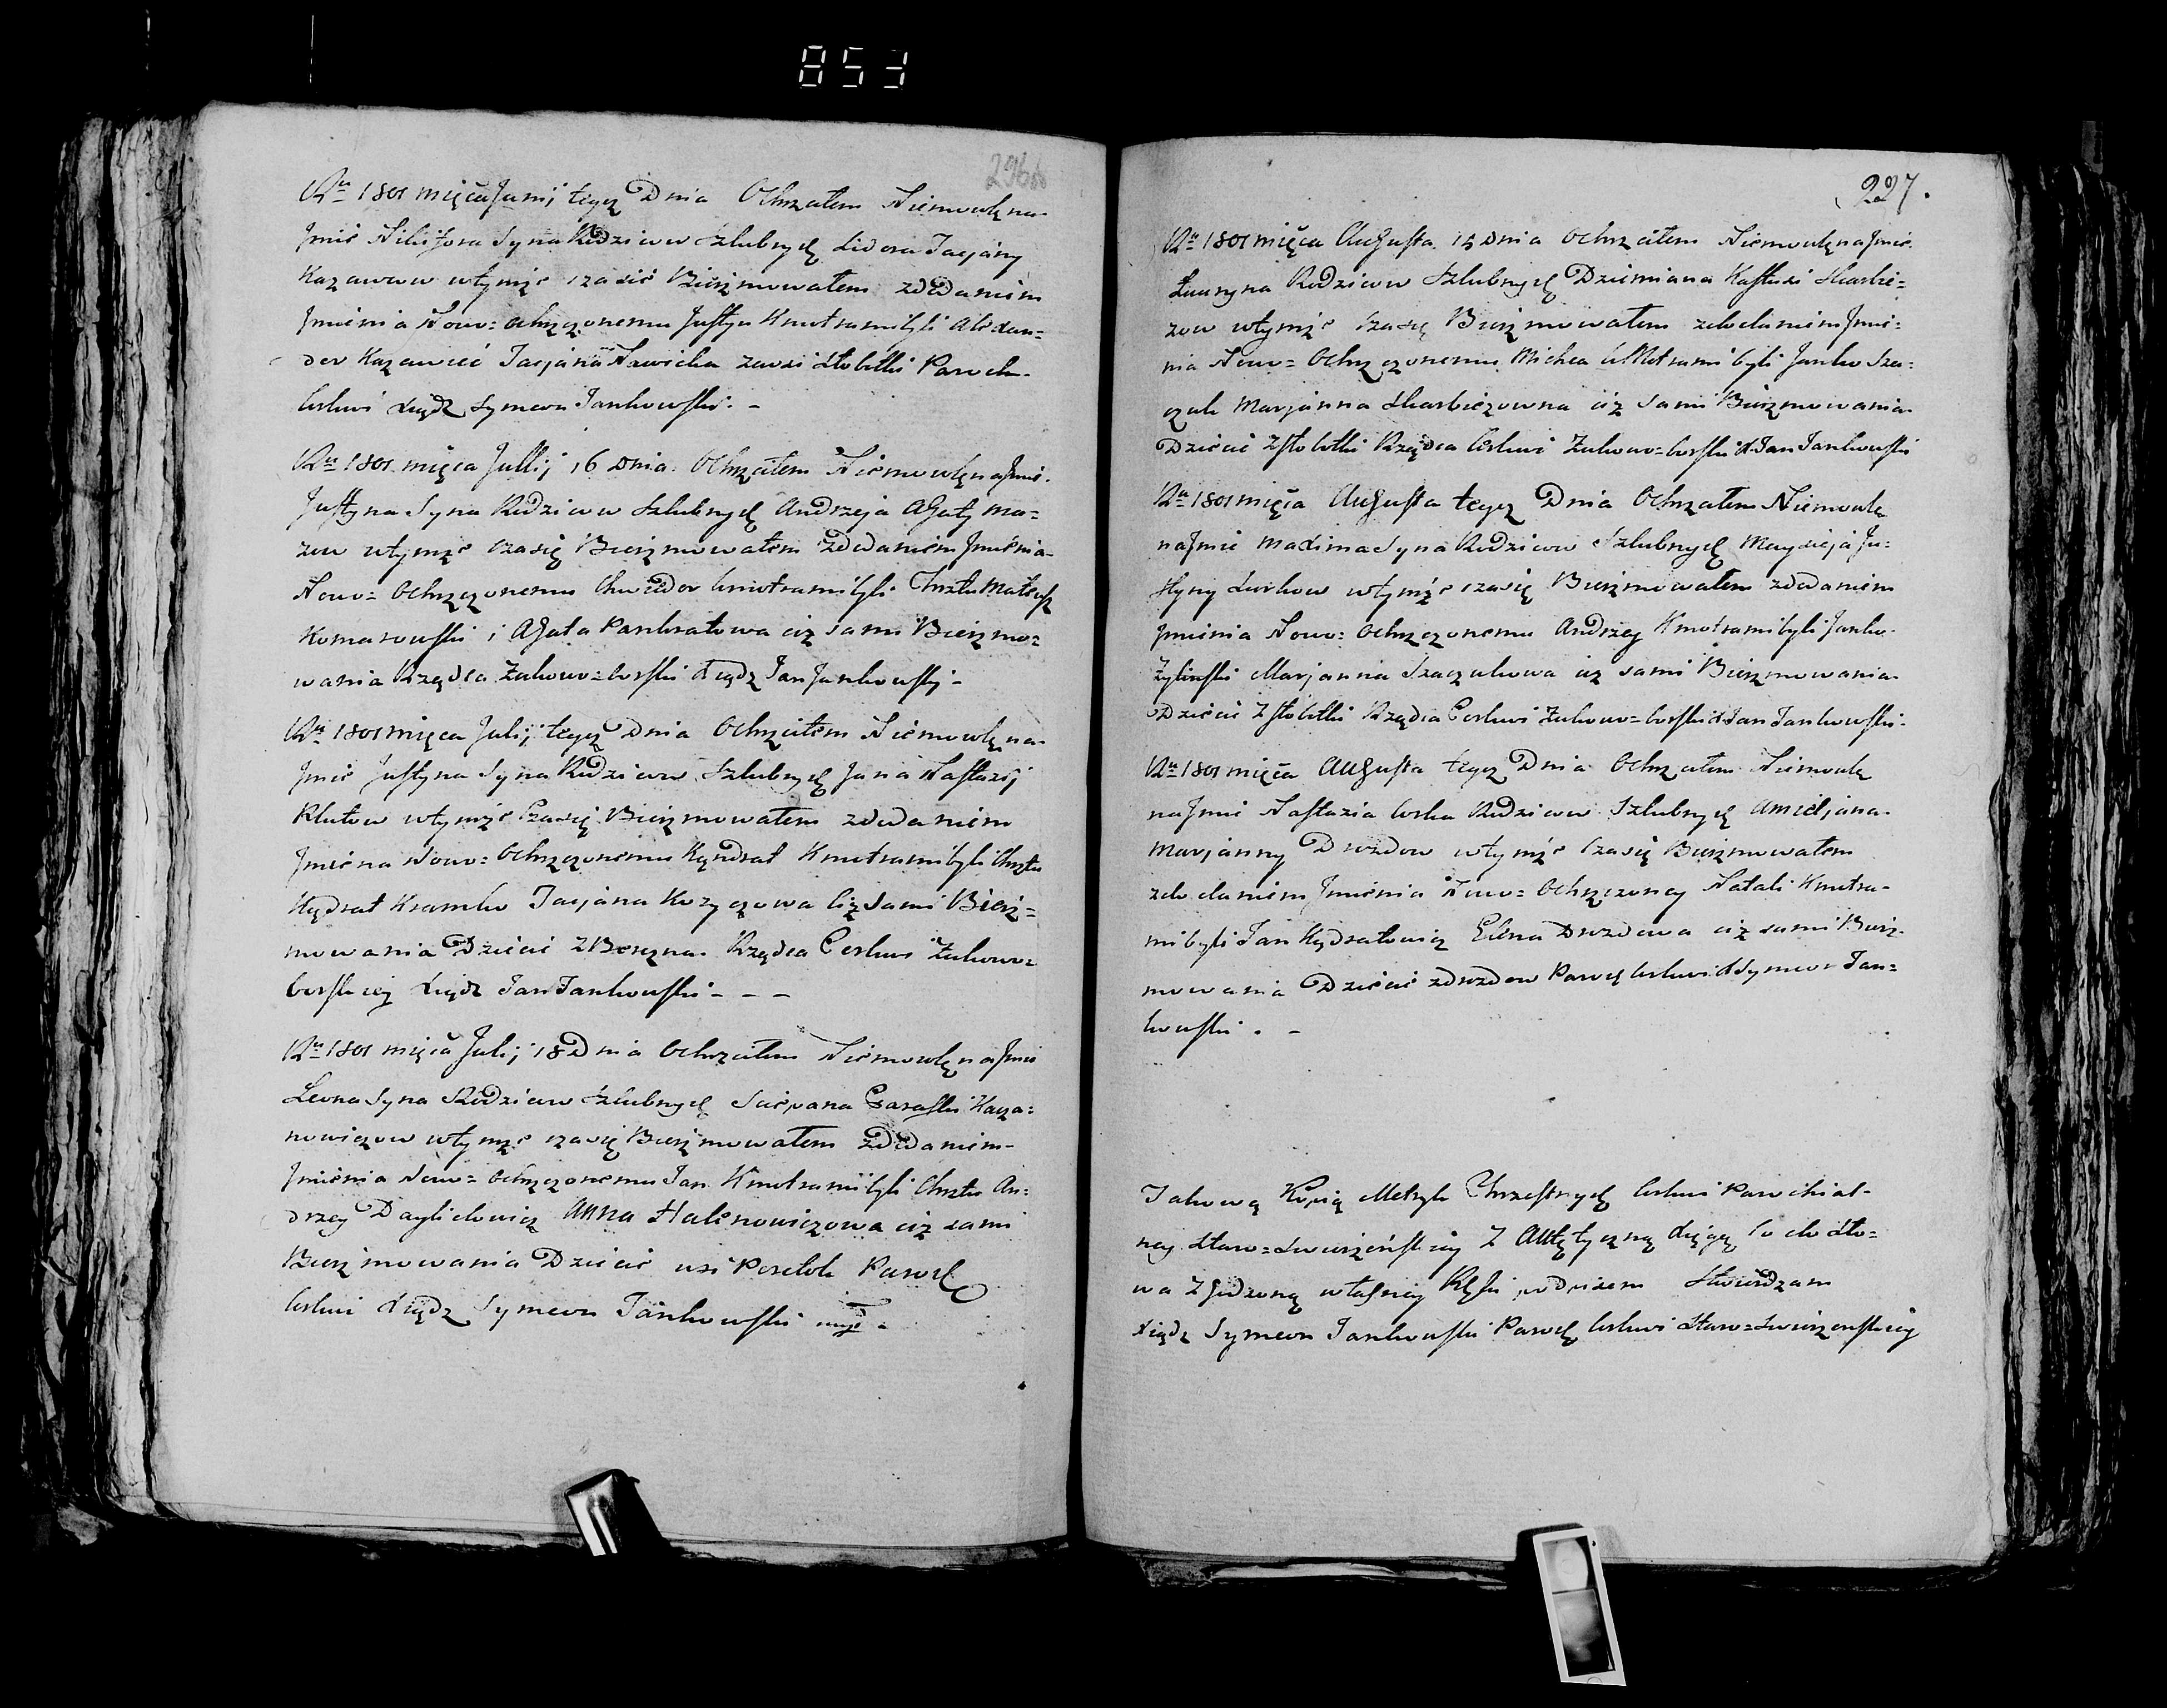 853
296
Ru 1801 mięca Junij tegoż Dnia Ochrzciłem Niemowlę na
Jmie Nikifora Syna Rodziców Szlubnych Sidora Tacjany
Kazawow w tymże czasie Bierzmowałem z dodaniem
Jmienia Nowo=Ochrzczonemu Justyn Kmotrami byli Alexan=
der Tacjana Nowicka z wsi Słobotki Paroch
Cerkwi Xiądz Symeon Jankowski. -
Ru 1801 mięca Julij 16 Dnia Ochrzciłem Niemowlę na Jmie
Justyna Syna Rodziców Szlubnych Andrzeja Agaty Ma=
zow w tymże czasie Bierzmowałem z dodaniem Jmienia
Nowo=Ochrzczonemu Chwiedor Kmotrami byli Chrztu Mateusz
Komarowski i Agata Pankratowa ciż sami Bierzmo=
wania Rządca Żukowo=borski Xiądz Jan Jankowski -
Ru 1801 mięca Julij tegoż Dnia Ochrzciłem Niemowlę na
Jmie Justyna Syna Rodziców Szlubnych Jana Nastazij
Klutow w tymże Czasie Bierzmowałem z dodaniem
Jmiena Nowo=Ochrzczonemu Kądrat Kmotrami byli Chrztu
Kądrat Kramko Tacjana Kozyczowa Ciż sami Bierz=
mowania Dziecie z Berezna Rządca Cerkwi Żukowo=
borskiej Xiądz Jan Jankowski - - -
Ru 1801 mięca Julij 18 Dnia Ochrzciłem Niemowlę na Jmie
Leona Syna Rodziców Szlubnych Sciepana Paraski Kacza=
nowiczow w tymże czasie Bierzmowałem z dodaniem
Jmienia Nowo=Ochrzczonemu Jan Kmotrami byli Chrztu An=
drzey Daylidowicz Anna Halenowiczowa ciż sami
Bierzmowania Dziecie wsi Paroch
Cerkwi Xiądz Symeon Jankowski mp -
227.
Ru 1801 mięca Augusta 15 Dnia Ochrzciłem Niemowlę na Jmie
Ławryna Rodziców Szlubnych Dziemiana Nastazi Skarbie=
zow w tymże czasie Bierzmowałem z dodaniem Jmie=
nia Nowo=Ochrzczonemu Kmotrami byli Janko Sza=
czuk Marjanna Skarbiezowna ciż sami Bierzmowania
Dziecie z Słobotki Rządca Cerkwi Żukowo=borski X Jan Jankowski
Ru 1801 mięca Augusta tegoż Dnia Ochrzciłem Niemowle
na Jmie Maxima Syna Rodziców Szlubnych Ju=
styny w tymże czasie Bierzmowałem z dodaniem
Jmienia Nowo=Ochrzczonemu Andrzey Kmotrami byli Janko
Żyliński Marjanna Szaczukowa ciż sami Bierzmowania
Dziecie z Słobotki Rządca Cerkwi Żukowo=borski X Jan Jankowski
Ru 1801 mięca Augusta tegoż Dnia Ochrzciłem Niemowle
na Jmie Nastazia Corka Rodziców Szlubnych
Marjanny Drozdow w tymże Czasie Bierzmowałem
z dodaniem Jmienia Nowo=Ochrzczoney Natali Kmotra=
mi byli Jan Kądratowicz Elena Drozdowa ciż sami Bierz
mowania Dziecie z Drozdow Paroch Cerkwi X Symeon Jan=
kowski . -
Takową Kopią Metryk Chrzestnych Cerkwi Parochial=
ney Staro=Swierzeńskiey z Autętyczną Xięgą co do Sło=
wa zgodzoną własney Ręki podpisem stwierdzam
Xiądz Symeon Jankowski Paroch Cerkwi Staro=Swierzenskiey